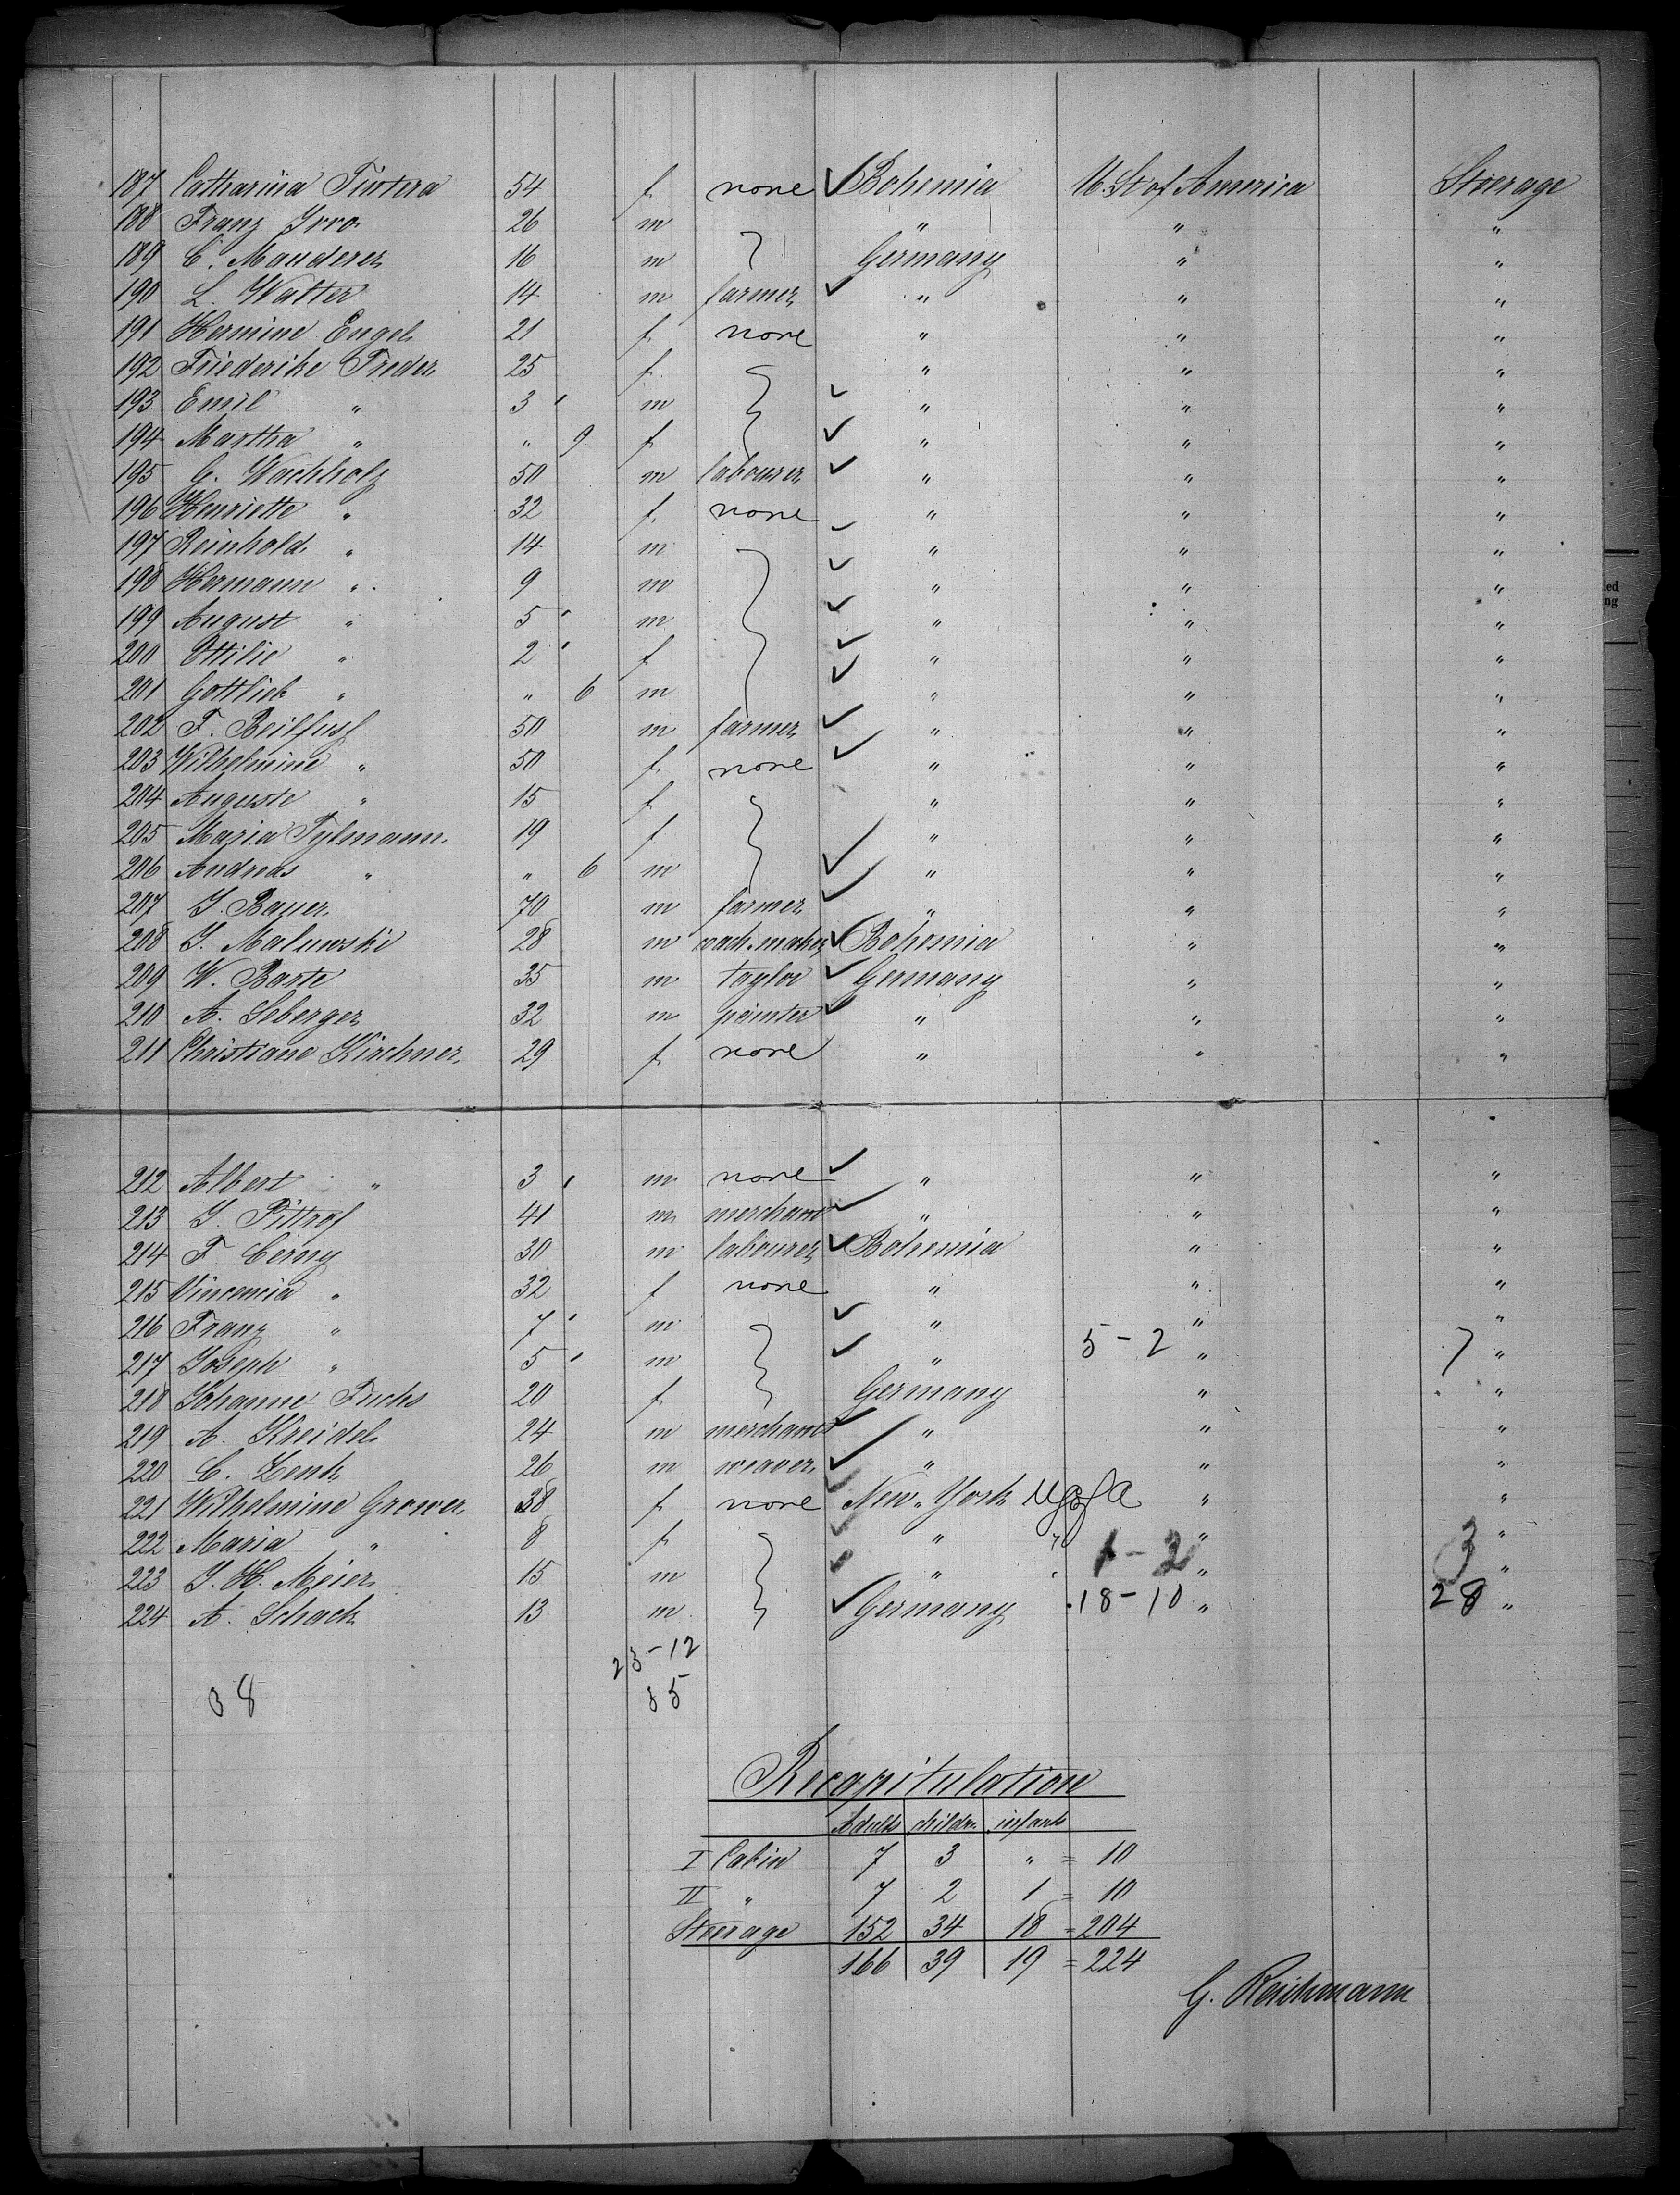 187 Catharina Tintera 54 f none Bohemia U. St of America Steerage
188 Franz Irro 26 m " " "
189 C. Mauderer 16 m Germany " "
190 L. Walter 14 m farmer " " "
191 Hermine Engel 21 f none " " "
192 Friederike Freder 25 f " " "
193 Emil " 3 m " " "
194 Martha " " 9 f " " "
195 G. Wachholz 50 m labourer " " "
196 Henriette " 32 f none " " "
197 Reinhold " 14 m " " "
198 Hermann " 9 m " " "
199 August " 5 m " " "
200 Ottilie " 2 f " " "
201 Gottlieb " " 6 m " " "
202 F. Beilfuss 50 m farmer " " "
203 Wilhelmine " 50 f none " " "
204 Auguste " 15 f " " "
205 Maria Tylmann 19 f " " "
206 Andreas " " 6 m " " "
207 J. Bauer 70 m farmer " " "
208 J. Malunski 28 m Bohemia " "
209 W. Barte 35 m taylor Germany " "
210 A. Seberger 32 m painter " " "
211 Christiane Kirchner 29 f none " " "
212 Albert " 3 m none " " "
213 J. Pittrof 41 m merchant " " "
214 F. Cerny 30 m labourer Bohemia " "
215 Vincencia " 32 f none " " "
216 Franz " 7 m " " "
217 Joseph " 5 m " 5-2 " 7 "
218 Johanne Fuchs 20 f Germany " "
219 A. Kreidel 24 m merchant " " "
220 C. Zenk 26 m weaver " " "
221 Wilhelmine Grower 38 f none New-York " "
222 Maria " 8 f " " " "
223 J. H. Meier 15 m " " 1-2 " 3 "
224 A. Schack 13 m Germany 18-10 " 28 "
23-12
38 35
Recapitulation
Adults childr. infants
I Cabin 7 3 " = 10
II " 7 2 1 = 10
Steerage 152 34 18 = 204
166 39 19 = 224
G. Reichmann